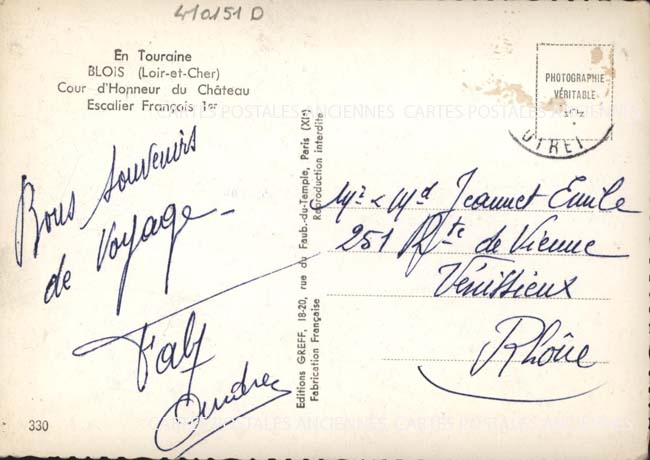 410151 D
En Touraine
BLOIS (Loir-et-Cher)
Cour d'Honneur du Château
Escalier François 1er
PHOTOGRAPHIE
VÉRITABLE
CARTES POSTALES ANCIENNES CARTES POSTALES ANCIENNES
Bons souvenirs
de Voyage
Editions GREFF, 18-20, rue du Faub.-du-Temple, Paris (XIe)
Fabrication Française
Reproduction interdite
Mr & Md Jeannet Emile
251 Rte de Vienne
Vénissieux
Rhône
330
CARTES POSTALES ANCIENNES CARTES POSTALES ANCIENNES